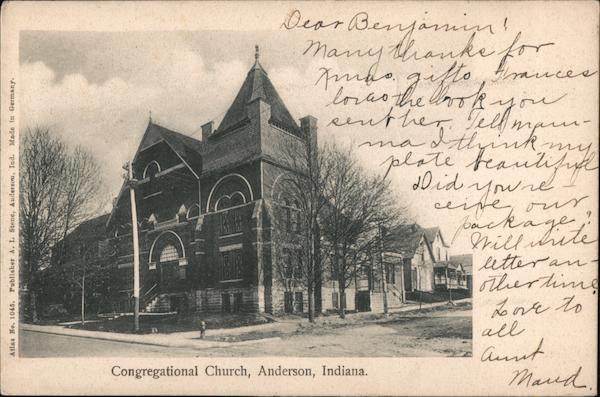 Dear Benjamin!
Many thanks for
Xmas. gifts. Frances
loves the book you
sent her. Tell mam-
ma I think my
plate beautiful
Did you re-
ceive our
package?
Will write
letter an-
other time.
Love to
all
Aunt
Maud.
Atlas No. 1045. Publisher A. L. Stone, Anderson, Ind. Made in Germany.
Congregational Church, Anderson, Indiana.